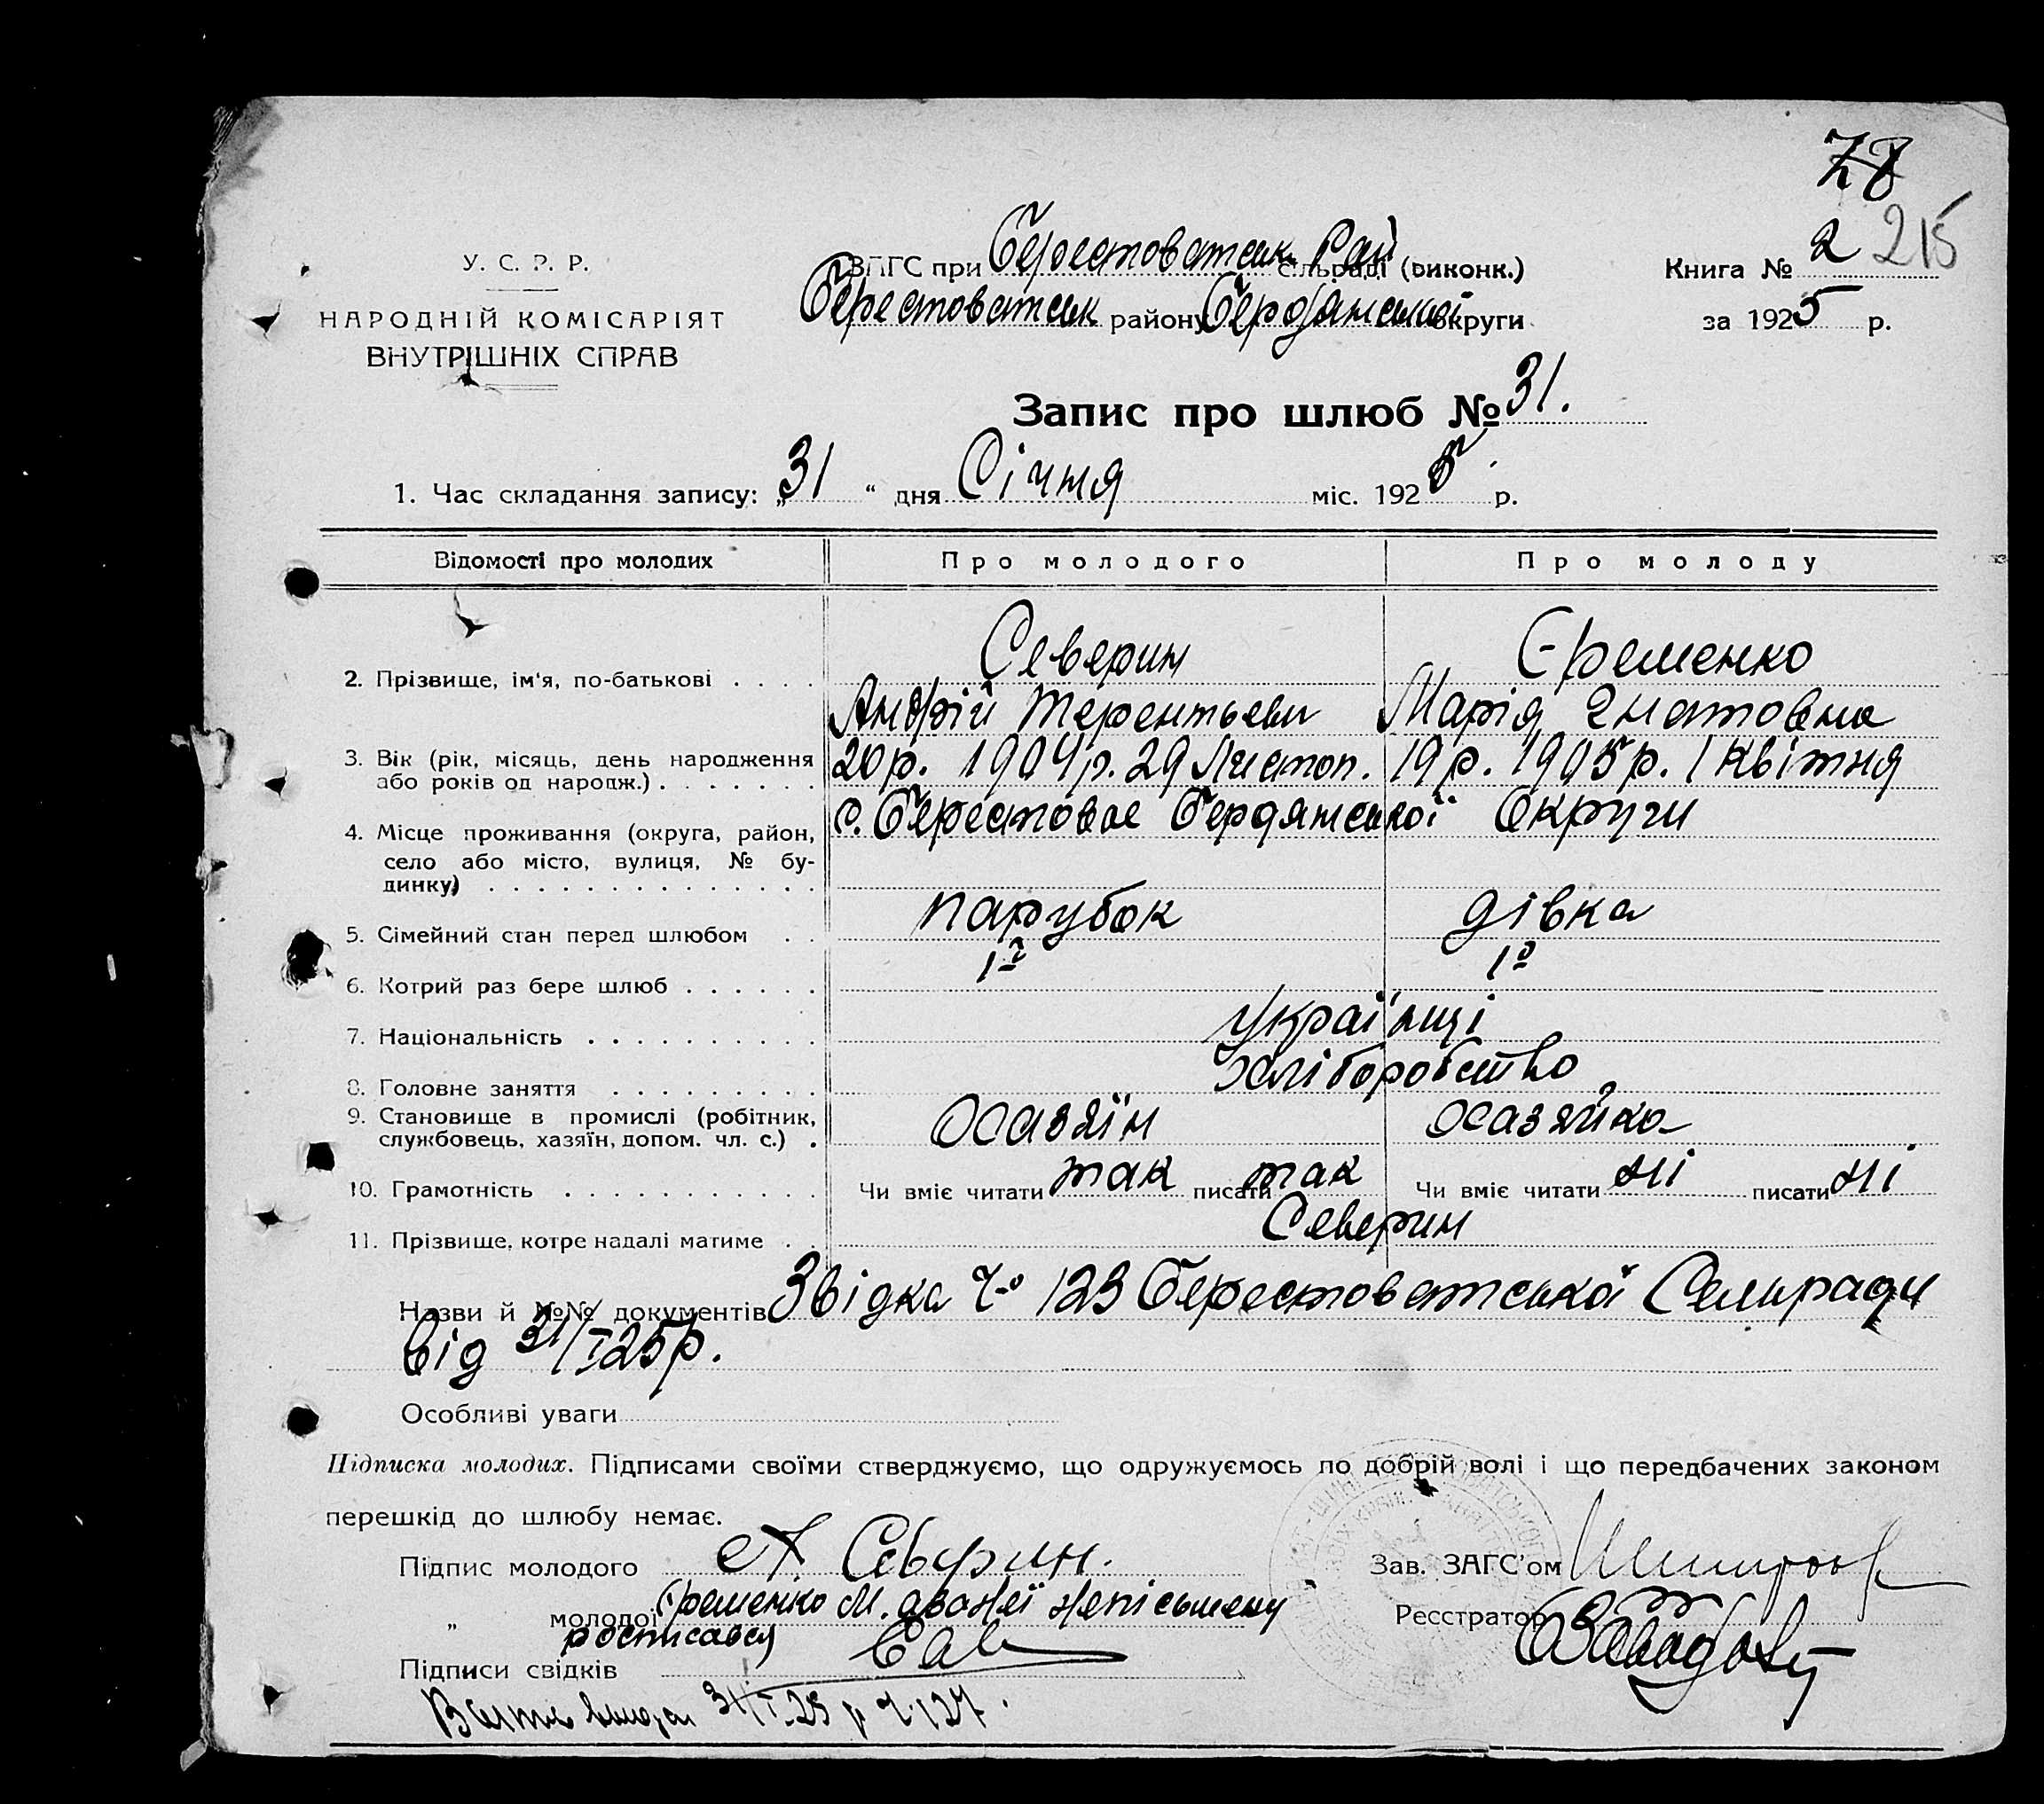 78
У. С. Р. Р.
НАРОДНІЙ КОМІСАРІЯТ
ВНУТРІШНІХ СПРАВ
ЗАГС при Берестоватськ. Рай сільраді (виконк.)
Берестоватськ району Бердянської округи
Книга № 2 215
за 1925 р.
Запис про шлюб № 31.
1. Час складання запису: „31“ дня Січня міс. 1925 р.
Відомості про молодих Про молодого Про молоду
2. Прізвище, ім'я, по-батькові . . . . Северин Єременко
Андрій Терентьеви Марія Гнатовна
3. Вік (рік, місяць, день народження або років од народж.) . . . . . . . 20 р. 1904 р. 29 Листоп. 19 р. 1905 р. 1 Квітня
4. Місце проживання (округа, район, село або місто, вулиця, № будинку) . . . . . . . . . . . . . . с. Берестовое Бердянської Округи
5. Сімейний стан перед шлюбом . . парубок дівка
6. Котрий раз бере шлюб . . . . . . 1й 1й
7. Національність . . . . . . . . . . Українці
8. Головне заняття . . . . . . . . . Хліборобство
9. Становище в промислі (робітник, службовець, хазяїн, допом. чл. с.) . Хазяїн Хазяйка
10. Грамотність . . . . . . . . . . . Чи вміє читати так писати так Чи вміє читати ні писати ні
11. Прізвище, котре надалі матиме . . Северин
Назви й №№ документів Звідка Ч-о 123 Берестоватської Сельради
від 31/I 25 р.
Особливі уваги
Підписка молодих. Підписами своїми стверджуємо, що одружуємось по добрій волі і що передбачених законом
перешкід до шлюбу немає.
Підпис молодого А Северин.
Зав. ЗАГС'ом
„ молодої Єременко М. а за неї непісьмену
росписався
Реєстратор
Підписи свідків